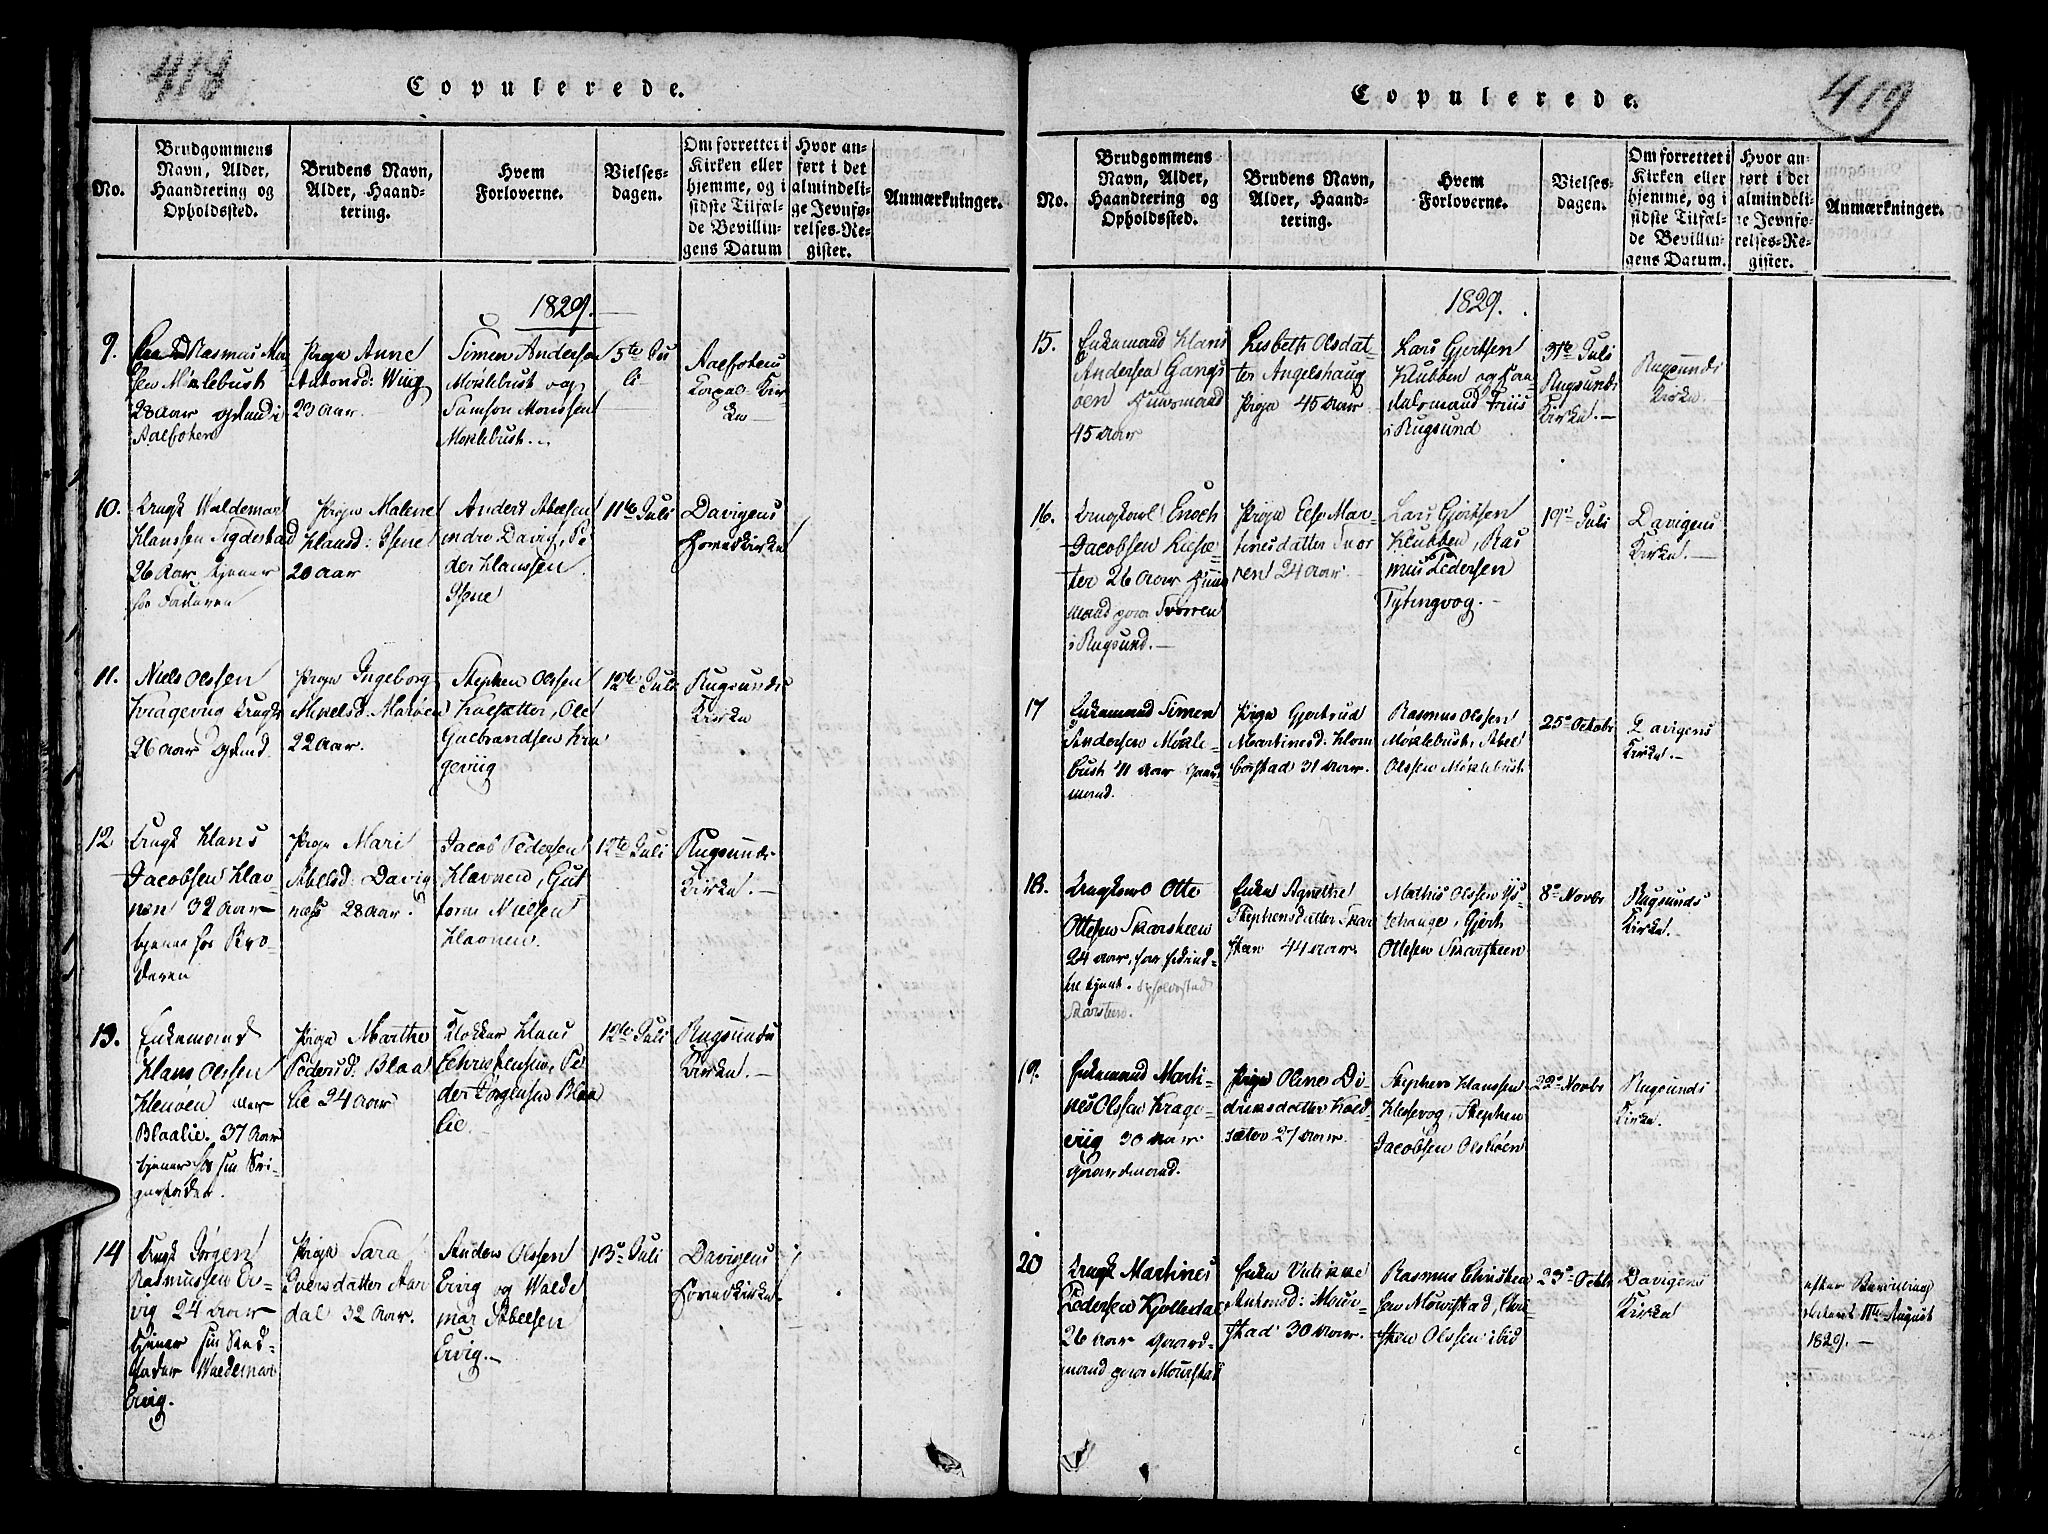 418
Copulerede.
No.
Brudgommens
Navn, Alder,
Haandtering og
Opholdssted.
Brudens Navn,
Alder, Haand-
tering.
Hvem
Forloverne.
Vielses-
dagen.
Om forrettet i
Kirken eller
hjemme, og i
sidste Tilfæl-
de Bevillin-
gens Datum
Hvor an-
ført i det
almindeli-
ge Jevnfø-
relses-Re-
gister.
Anmærkninger.
1829.
9.
Rasmus Mon
sen Møklebust
28 Aar
Aalfoten
Pige Anne
Antonsd: Wiig
23 Aar.
Simen Andersen
Møklebust og
Samson Monssen
Møklebust.
5te Ju
li
Aalfotens
Kirke
10.
Ungk Waldemar
Hanssen Nigdestad
26 Aar, tjener
for Faderen
Pige Malene
Hansd: Isene
20 Aar
Anders Abelsen
indre Davig, Pe
der Hanssen
Isene
11te Juli
Davigens
Hovedkirke
11.
Niels Olssen
Kragevig Ungk
26 Aar
Pige Ingeborg
Mikelsd: Marøen
22 Aar.
Stephen Olssen
Kolsætter, Ole
Gulbrandsen Kra
geviig
12te Juli
Rugsunds
Kirke
12
Ungk Hans
Jacobsen Hav-
nen 32 Aar
tjener for Bro-
deren
Pige Mari
Abelsd: Davig
næss 28 Aar.
Jacob Pedersen
Havnen, Gut
torm Nielsen
Havnen.
12te Juli
Rugsunds
Kirke.
13.
Enkemand
Hans Olssen
Henøen eller
Blaalie. 37 Aar
tjener for sin Svi-
gerfader.
Pige Marthe
Pedersd: Blaa
lie 24 Aar
Klokker Hans
Christensen, Pe
der Jørgensen Blaa
lie.
12te Juli
Rugsunds
Kirke.
14
Ungk Jørgen
Rasmussen Er-
vig 24 Aar
tjener sin Sted-
fader Waldemar
Ervig.
Pige Sara
Evensdatter Aar
dal 32 Aar.
Anders Olssen
Ervig og Walde
mar Abelsen
Ervig.
13e Juli
Davigens
Hovedkirke.
419
Copulerede.
No.
Brudgommens
Navn, Alder,
Haandtering og
Opholdssted.
Brudens Navn,
Alder, Haand-
tering.
Hvem
Forloverne.
Vielses-
dagen.
Om forrettet i
Kirken eller
hjemme, og i
sidste Tilfæl-
de Bevillin-
gens Datum.
Hvor an-
ført i det
almindeli-
ge Jevnfø-
relses-Re-
gister.
Anmærkninger.
1829.
15.
Enkemand Hans
Andersen Gangs
øen Huusmand
45 Aar
Lisbeth Olsdat-
ter Angelshaug
Pige 45 Aar
Lars Gjertsen
Hubben og
Friis
i Rugsund
31te Juli
Rugsunds
Kirke.
Rugsunds
Kirke.
16.
Ungkarl Enoch
Jacobsen
26 Aar Huus
mand paa Tvorren
i Rugsund.
Pige Else Mar-
tinesdatter Tvor
ren 24 Aar.
Lars Gjertsen
Hubben, Ras
mus Pedersen
Tytingvog.
19e Juli
Davigens
Kirke.
17
Enkemand Simen
Andersen Møkle-
bust 41 Aar Gaard
mand.
Pige Gjertrud
Martinesd: Hom
borstad 31 Aar.
Rasmus Olssen
Møklebust, Abel
Olssen Møklebust
25e Octobr
Davigens
Kirke.
18.
Ungkarl Otte
Ottesen Skarsteen
24 Aar, har
tjent.
Skarsteen.
Enke Agnethe
Stephensdatter Skar
steen 44 Aar.
Mathis Olssen
Gjert
Ottesen Skarsteen
8e Novbr
Rugsunds
Kirke.
19.
Enkemand Marti-
nes Olssen Krage-
viig 30 Aar
Gaardmand.
Pige Oline Di-
driksdatter Kold
sæter 27 Aar.
Stephen Hanssen
Hessevog, Stephen
Jacobsen Olskøen
22e Novbr
Rugsunds
Kirke.
20
Ungk Martines
Pedersen Kjøllesdal
26 Aar Gaard-
mand paa Mourstad
Enke Ulrikke
Antonsd: Mour-
stad 30 Aar.
Rasmus Christen
sen Mourstad, Chri
sten Olssen ibid
23e Octbr
Davigens
Kirke
efter Bevilling
dateret 11te August
1829.